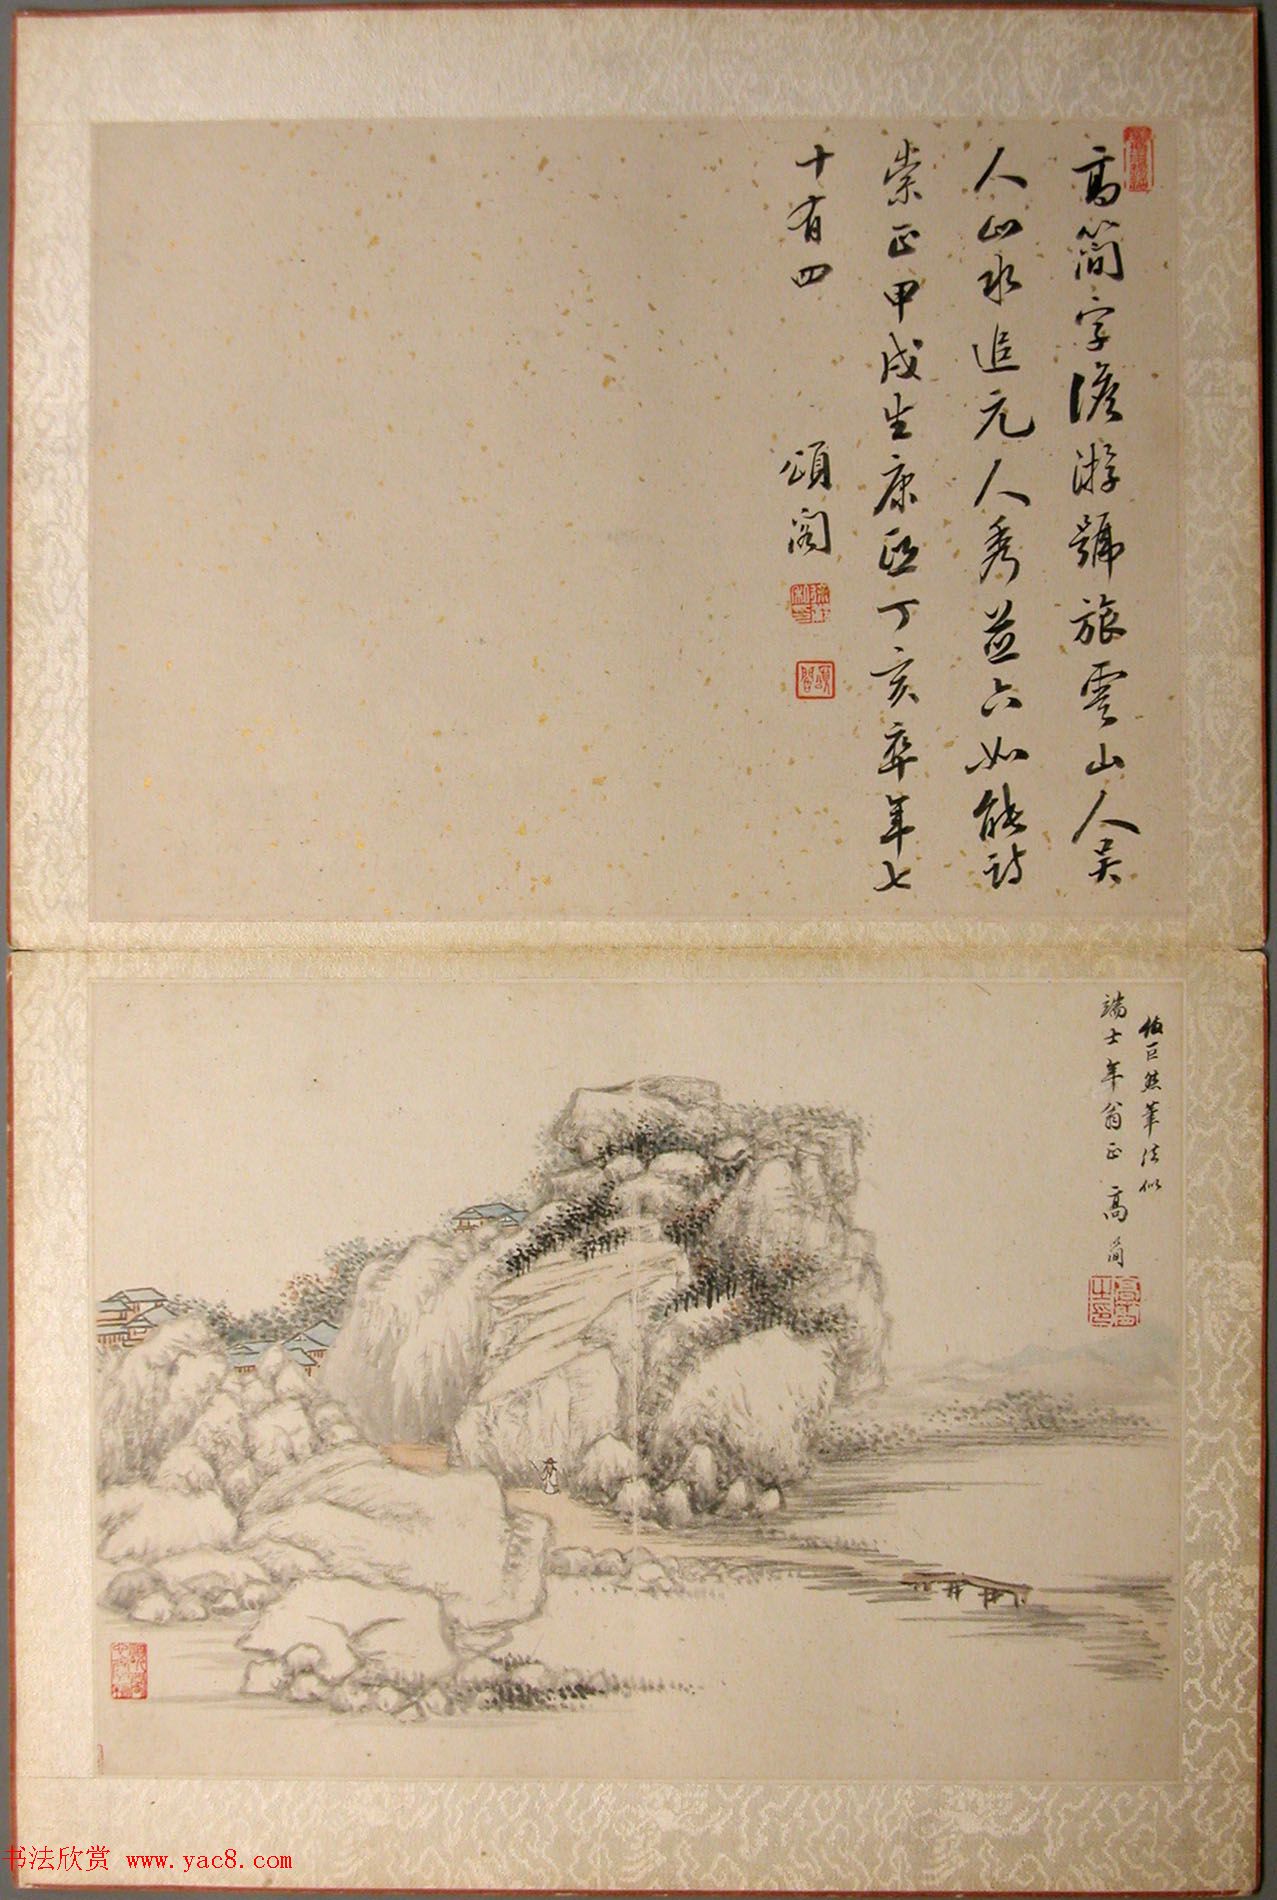 高簡字澹游號旅雲山人吴
人山水追元人秀並六如能詩
崇正甲戌生康熙丁亥卒年七
十有四
頌閣
頌閣
倣巨然筆法似
端士年翁正 高簡
高簡之印
书法欣赏 www.yac8.com